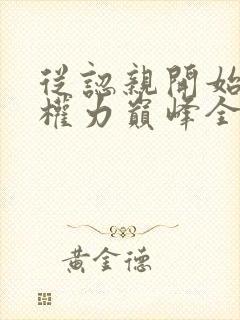 從認親開始
權力巔峰全
黃金德